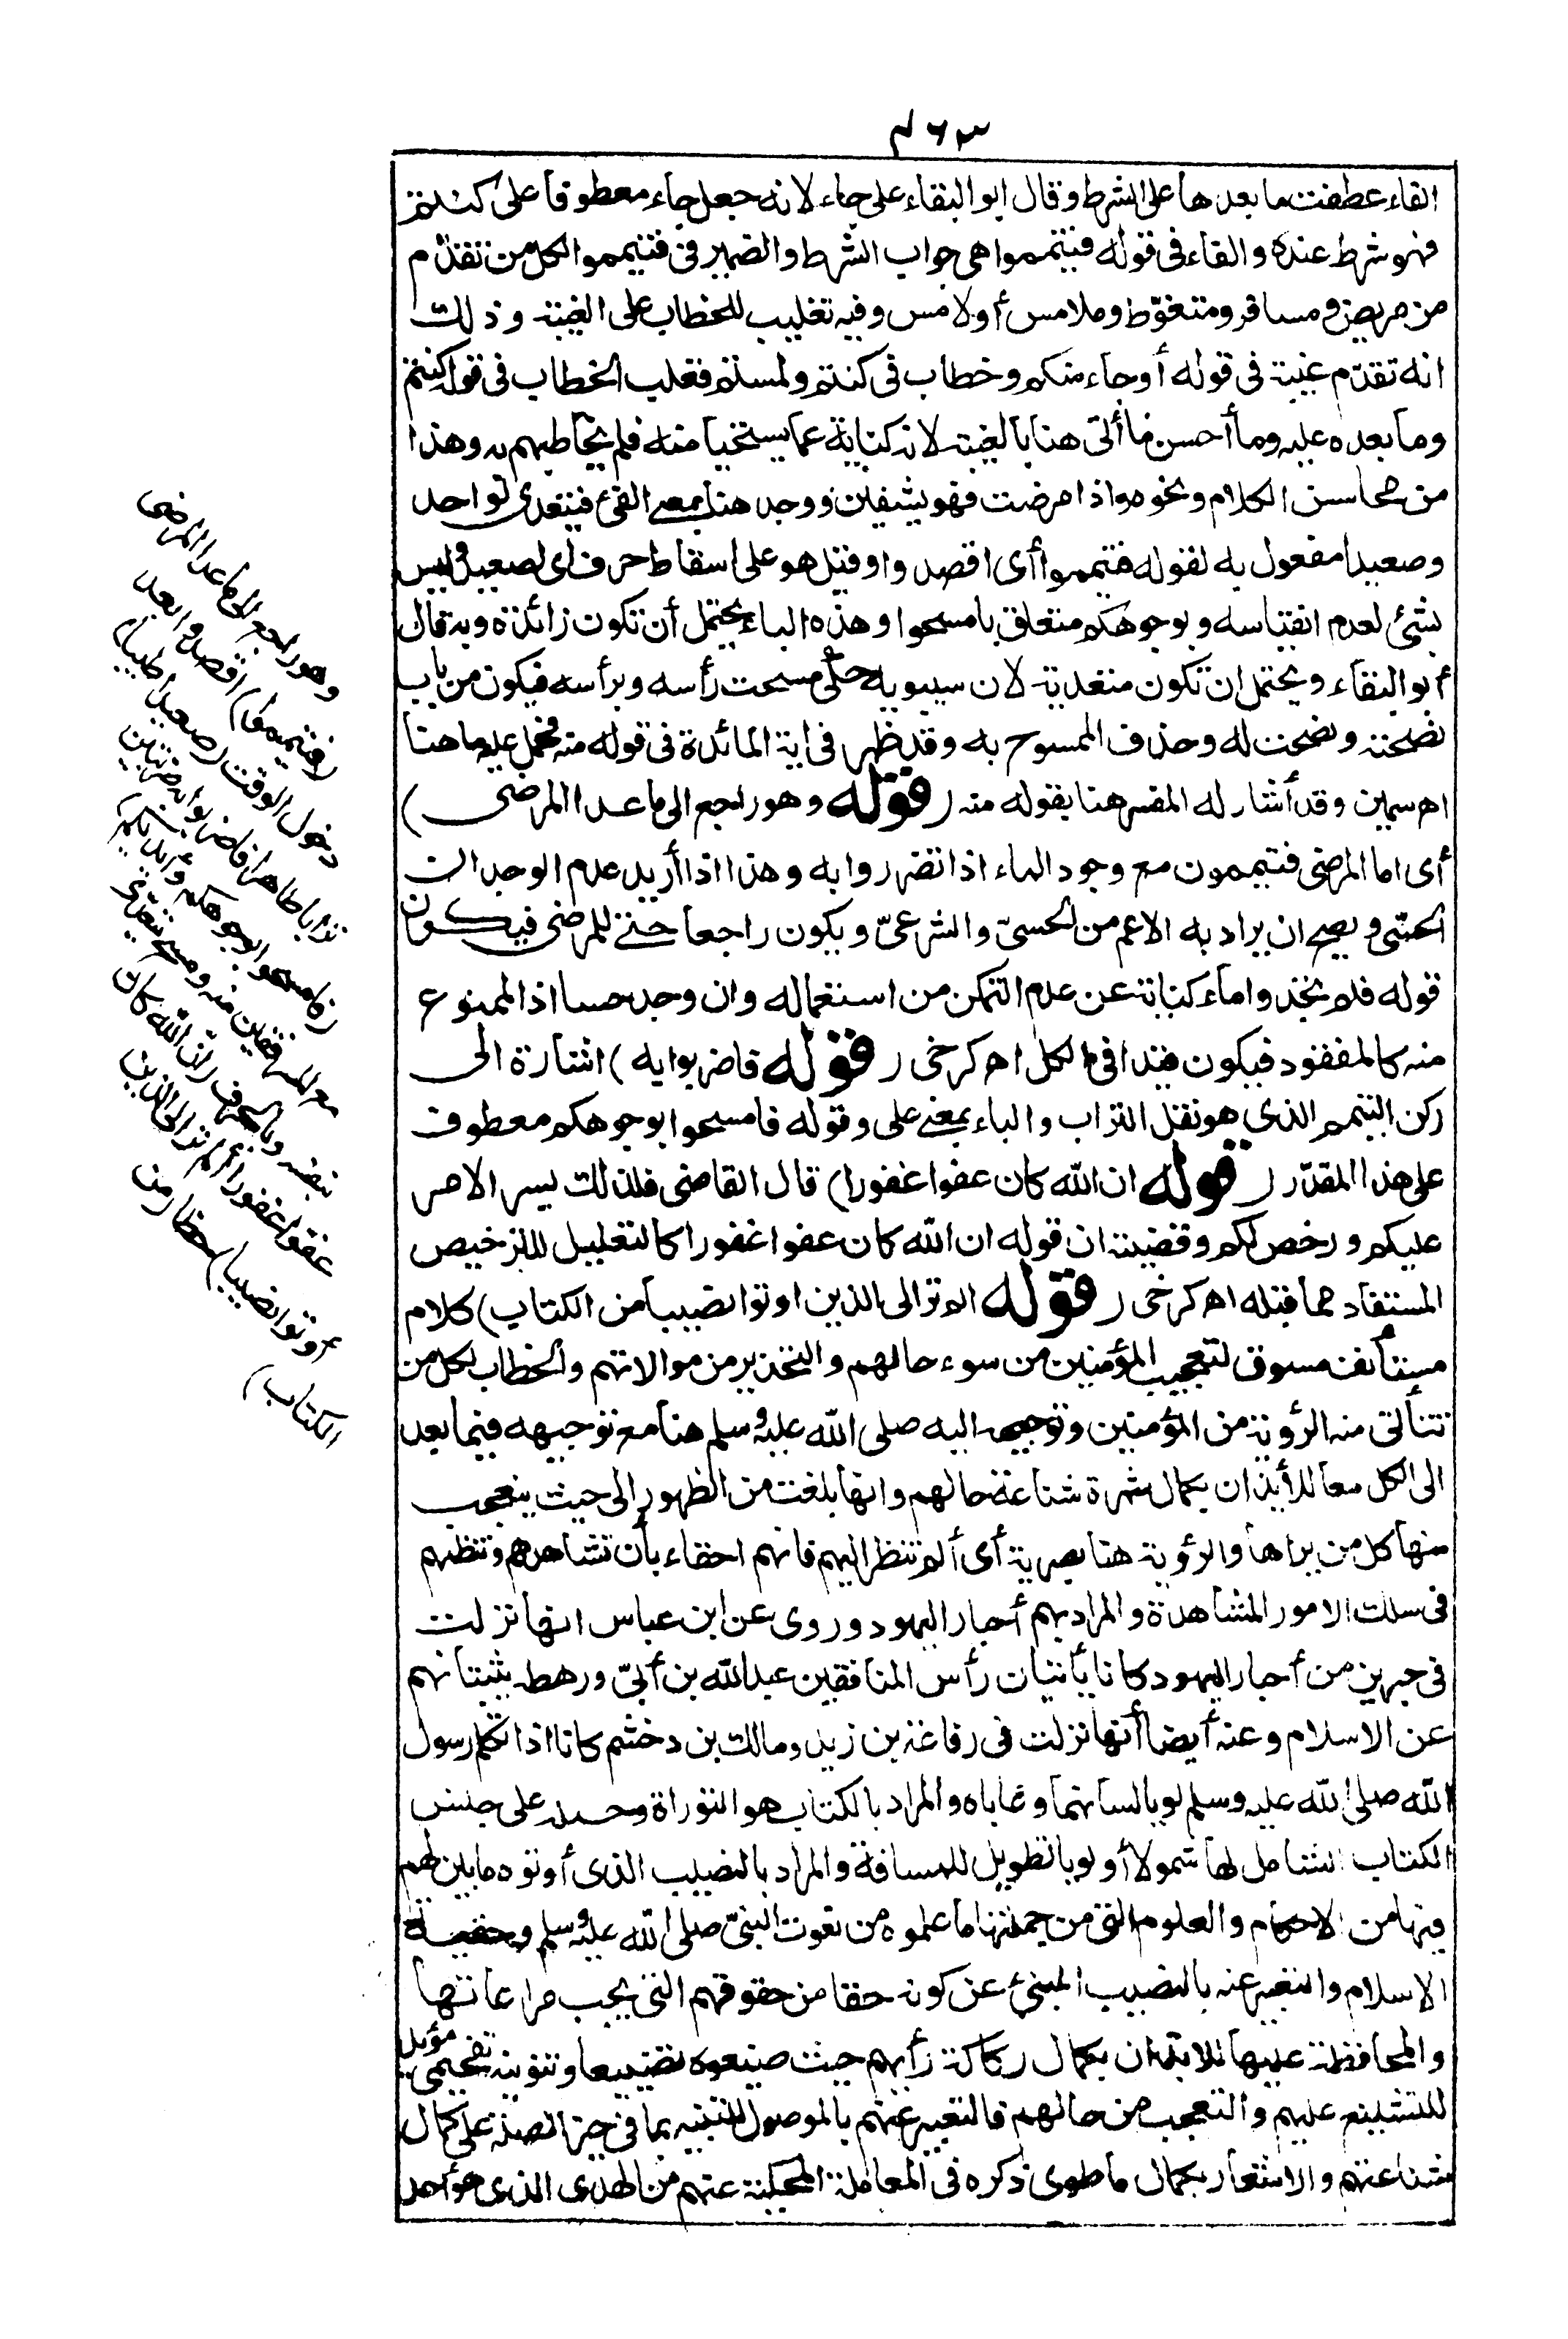 ٤٦٣
الفاء عطفت ما بعدها على الشرط وقال ابو البقاء على جاء لانه جعل جاء معطوفا على كنتم
فهو شرط عنده والفاء فى قوله فتيمموا هى جواب الشرط والضمير فى فتيمموا لكل من تقدّم
من مريض ومسافر ومتغوّط وملامس أو لامس وفيه تغليب للخطاب على الغيبة وذلك
انه تقدّم غيبة فى قوله أو جاء منكم وخطاب فى كنتم ولمستم فغلب الخطاب فى قوله كنتم
وما بعده عليه وما أحسن ما أتى هنا بالغيبة لانه كناية عما يستحيا منه فلم يخاطبهم به وهذا
من محاسن الكلام ونحوه واذا مرضت فهو يشفين ووجد هنا بمعنى لقى فيتعدى لواحد
وصعيدا مفعول به لقوله فتيمموا أى اقصدوا وقيل هو على اسقاط حرف أى لصعيد وليس
بشئ لعدم اقتياسه وبوجوهكم متعلق بامسحوا وهذه الباء يحتمل أن تكون زائدة وبه قال
أبو البقاء ويحتمل ان تكون متعدية لان سيبويه حكى مسحت رأسه وبرأسه فيكون من باب
نصحته ونصحت له وحذف الممسوح به وقد ظهر فى آية المائدة فى قوله منه فحمل عليه ما هنا
اه سمين وقد أشار له المفسر هنا بقوله منه (قوله وهو راجع الى ما عدا المرضى)
أى اما المرضى فتيممون مع وجود الماء اذا تضرروا به وهذا اذا أريد عدم الوجدان
الحسّى ويصح ان يراد به الاعم من الحسىّ والشرعىّ ويكون راجعا حتى للمرضى فيكون
قوله فلم تجدوا ماء كناية عن عدم التمكن من استعماله وان وجد حسا اذ الممنوع
منه كالمفقود فيكون قيدا فى الكل اه كرخى (قوله فاضربوا به) اشارة الى
ركن التيمم الذى هو نقل التراب والباء بمعنى على وقوله فامسحوا بوجوهكم معطوف
على هذا المقدّر (قوله ان الله كان عفوا غفورا) قال القاضى فلذلك يسر الامر
عليكم ورخص لكم وقضيته ان قوله ان الله كان عفوا غفورا كالتعليل للترخيص
المستفاد مما قبله اه كرخى (قوله الم تر الى الذين اوتوا نصيبا من الكتاب) كلام
مستأنف مسوق لتعجيب المؤمنين من سوء حالهم والتحذير من موالاتهم والخطاب لكل من
تتأتى منه الرؤية من المؤمنين وتوجيهه اليه صلى الله عليه وسلم هنا مع توجيهه فيما بعد
الى الكل معا للايذان بكمال شهرة شناعة حالهم وانها بلغت من الظهور الى حيث يتعجب
منها كل من يراها والرؤية هنا بصرية أى ألم تنظر اليهم فانهم احقاء بأن تشاهدهم وتنظمهم
فى سلك الامور المشاهدة والمراد بهم أحبار اليهود وروى عن ابن عباس انها نزلت
فى حبرين من أحبار اليهود كانا يأتيان رأس المنافقين عبد الله بن أبىّ ورهطه يثبتانهم
عن الاسلام وعنه أيضا أنها نزلت فى رفاعة بن زيد ومالك بن دخشم كانا اذا تكلم رسول
الله صلى الله عليه وسلم لويا لسانهما وعاباه والمراد بالكتاب هو التوراة وحمله على جنس
الكتاب الشامل لها شمولا أوليا تطويل للمسافة والمراد بالنصيب الذى أوتوه ما بين لهم
فيها من الاحكام والعلوم التى من جملتها ما علموه من نعوت النبىّ صلى الله عليه وسلم وحقية
الاسلام والتعبير عنه بالنصيب المنبئ عن كونه حقا من حقوقهم التى يجب مراعاتها
والمحافظة عليها للايذان بكمال ركاكة رأيهم حيث ضيعوه تضييعا وتنوينه تفخيمى مؤيد
للتشنيع عليهم والتعجيب من حالهم فالتعبير عنهم بالموصول للتنبيه بما فى حيز الصلة على كمال
شناعتهم والاشعار بكمال ما طوى ذكره فى المعاملة المحكية عنهم من الهدى الذى هو أحد
وهو راجع الى ما عدا المرضى
(فتيمموا) اقصدوا بعد
دخول الوقت (صعيدا طيبا)
ترابا طاهرا فاضربوا به ضربتين
(فامسحوا بوجوهكم وأيديكم)
مع المرفقين منه ومسح يتعدى
بنفسه وبالحرف (ان الله كان
عفوا غفورا ألم تر الى الذين
أوتوا نصيبا) حظا (من
الكتاب)